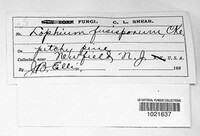 FUNGI. C. L. SHEAR.
No. Lophium fusisporum, Cke.
On pitchy pine
Collected near Newfield, N. J. U. S. A.
By J. B. Ellis, 188
US NATIONAL FUNGUS COLLECTIONS
1021637